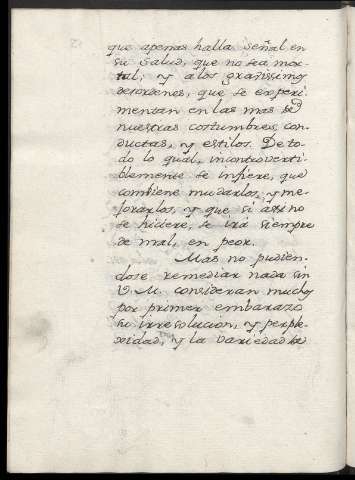 que apenas halla señal en
su salud, que no sea mor-
tal; y a los gravissimos
desordenes, que se experi-
mentan en las mas de
nuestras costumbres, con-
ductas, y estilos. De to-
do lo qual, incontroverti-
blemente se infiere, que
combiene mudarlos, y me-
jorarlos, y que si assi no
se hiciere, se irá siempre
de mal, en peor.
Mas no pudien-
dose remediar nada sin
V. M. consideran muchos
por primer embarazo
su irresolucion, y perple-
xidad, y la variedad de